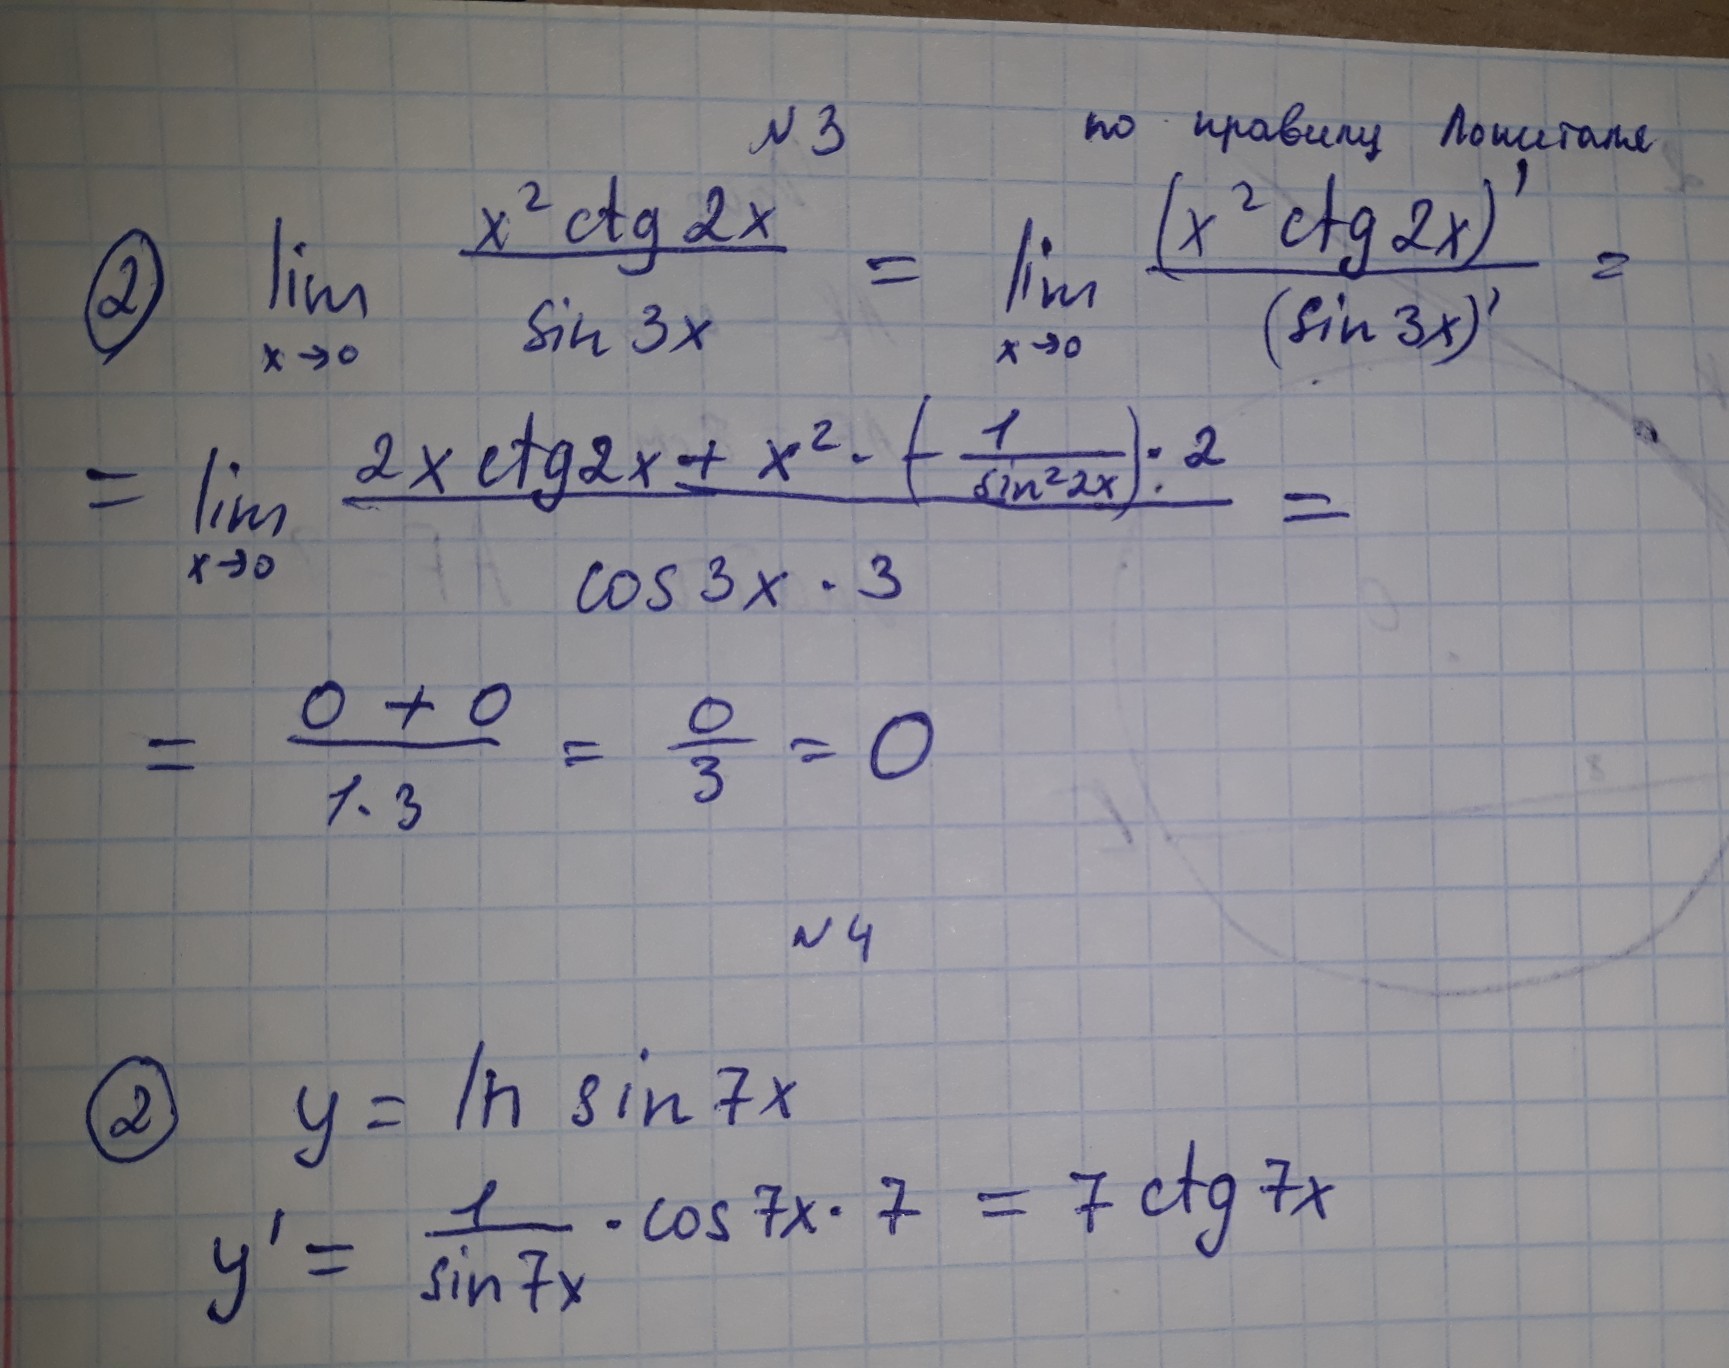 N3 по правилу Лопиталя
② lim x→0 x² ctg 2x / sin 3x = lim x→0 (x² ctg 2x)' / (sin 3x)' =
= lim x→0 2x ctg2x + x² · (− 1 / sin² 2x) · 2 / cos 3x · 3 =
= 0 + 0 / 1 · 3 = 0 / 3 = 0
N4
② y = ln sin 7x
y' = 1 / sin 7x · cos 7x · 7 = 7 ctg 7x